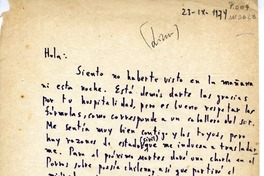 23-IX-1974
(Lihn)
Hola:
Siento no haberte visto en la mañana
ni esta noche. Está demás darte las gracias
por tu hospitalidad, pero es bueno respetar las
fórmulas, como corresponde a un caballero del sur.
Me sentía muy bien contigo y los tuyos, pero
hay razones de estado (civil) que me inducen a trasladar
me. Para el próximo martes daré una charla en el
sobre poesía chilena, así que partiré el